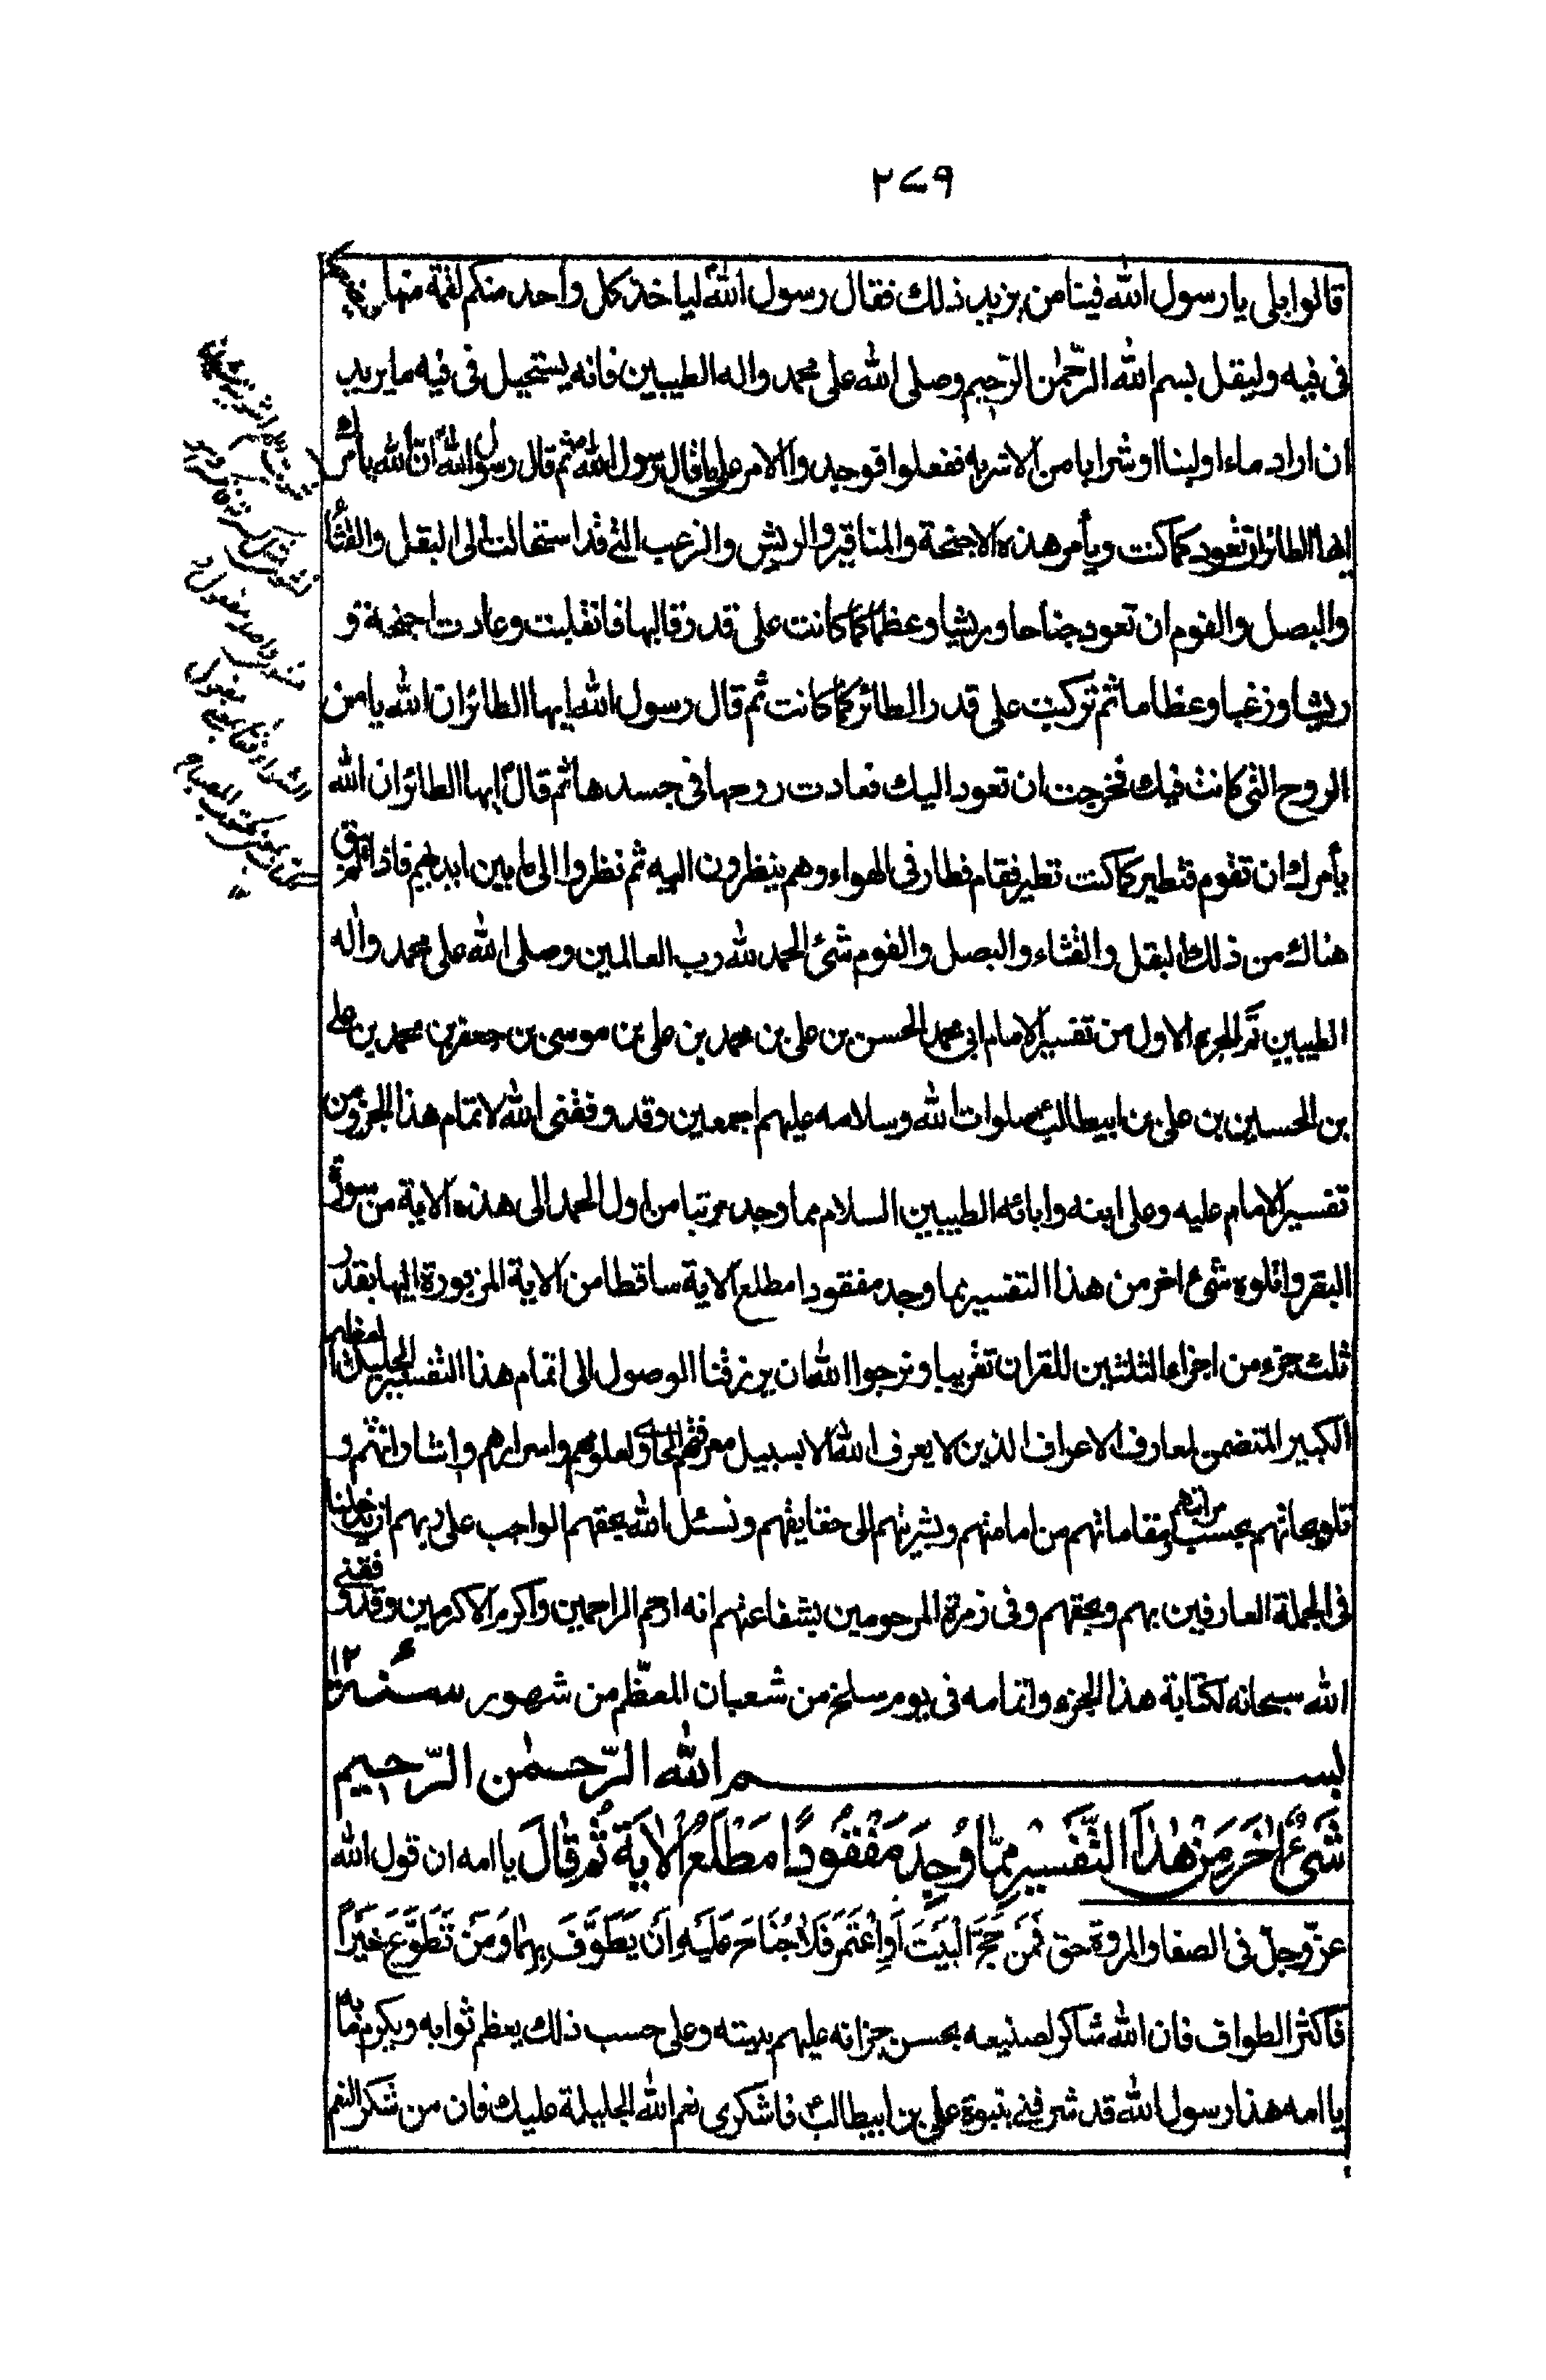 ۲۷۹
قالوا بلى يا رسول الله فينا من يريد ذلك فقال رسول اللهؐ ليأخذ كل واحد منكم لقمة منها
فى فيه وليقل بسم الله الرّحمٰن الرّحيم وصلى الله على محمد واله الطيبين فانه يستحيل فى فيه ما يريد
ان اراد ماء او لبنا او شرابا من الاشربه ففعلوا فوجدوا الامر على ما قال رسول اللهؐ ثم قال رسول اللهؐ ان الله يأمرك
ايها الطائر ان تعود كما كنت ويأمر هذه الاجنحة والمناقير والريش والزغب التى قد استحالت الى البقل والقثاء
والبصل والفوم ان تعود جناحا وريشا وعظما كما كانت على قدر قالبها فانقلبت وعادت اجنحة و
ريشا وزغبا وعظاما ثم تركبت على قدر الطائر كما كانت ثم قال رسول الله ايها الطائر ان الله يامر
الروح التى كانت فيك فخرجت ان تعود اليك فعادت روحها فى جسدها ثم قالؐ ايها الطائر ان الله
يأمرك ان تقوم فتطير كما كنت تطير فقام فطار فى الهواء وهم ينظرون اليه ثم نظروا الى ما بين ايديهم فاذا لم يبق
هناك من ذلك البقل والقثاء والبصل والفوم شئ الحمد لله رب العالمين وصلى الله على محمد واله
الطيبين تم الجزء الاول من تفسير الامام ابى محمد الحسن بن على بن محمد بن على بن موسى بن جعفر بن محمد بن على
بن الحسين بن على بن ابيطالب صلوات الله وسلامه عليهم اجمعين وقد وفقنى الله لاتمام هذا الجزو من
تفسير الامام عليه وعلى ابنه وابائه الطيبين السلام مما وجد مرتبا من اول الحمد الى هذه الاية من سورة
البقر واتلوه شئ اخر من هذا التفسير مما وجد مفقودا مطلع الاية ساقطا من الاية المزبورة اليها بقدر
ثلث جزء من اجزاء الثلثين للقران تقريبا ونرجوا الله ان يرزقنا الوصول الى اتمام هذا التفسير الجليل العظيم
الكبير المتضمن لمعارف الاعراف الذين لا يعرف الله الا بسبيل معرفتهم الحاوى لعلومهم واسرارهم واشاراتهم و
تلويحاتهم بحسب مراتبهم ومقاماتهم من امامتهم وبشريتهم الى حقايقهم ونسئل الله بحقهم الواجب على ربهم ان يدخلنا
فى الجملة العارفين بهم وبحقهم وفى زمرة المرحومين بشفاعتهم انه ارحم الراحمين واكرم الاكرمين وقد وفقنى
الله سبحانه لكتابة هذا الجزء واتمامه فى يوم سلخ من شعبان المعظّم من شهور سنة
بسم الله الرّحمٰن الرّحيم
شَىْءٌ اٰخَرَ مِنْ هٰذَا التَّفْسِيرِ مِمَّا وُجِدَ مَفْقُودًا مَطْلَعُ الْاٰيَةِ ثُمَّ قَالَ يا امه ان قول الله
عزّ وجلّ فى الصفا والمروة حق فَمَنْ حَجَّ الْبَيْتَ أَوِ اعْتَمَرَ فَلَا جُنَاحَ عَلَيْهِ أَنْ يَطَّوَّفَ بِهِمَا وَمَنْ تَطَوَّعَ خَيْرًا
فاكثر الطواف فان الله شاكر لصنيعه بحسن جزائه عليهم بنيته وعلى حسب ذلك يعظم ثوابه ويكرم مابه
يا امه هذا رسول الله قد شرفنى بنبوة على بن ابيطالب فاشكرى نعم الله الجليلة عليك فان من شكر النعم